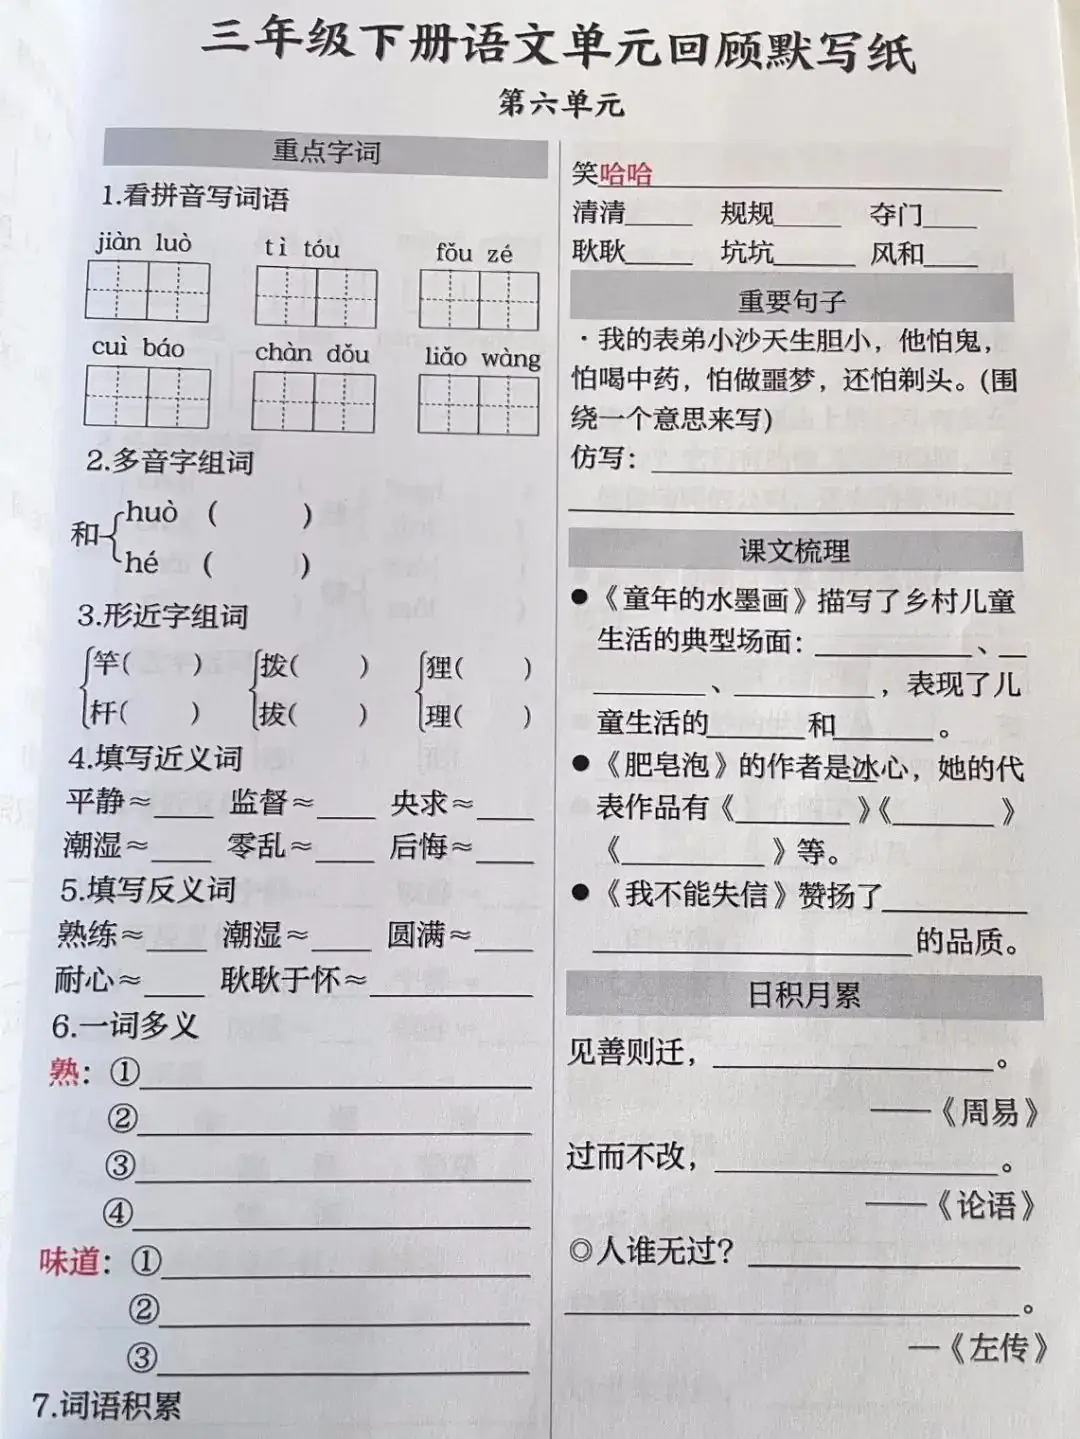 三年级下册语文单元回顾默写纸
第六单元
重点字词
1.看拼音写词语
jiàn luò tì tóu fǒu zé
cuì báo chàn dǒu liǎo wàng
2.多音字组词
和 huò ( )
hé ( )
3.形近字组词
竿( ) 拨( ) 狸( )
杆( ) 拔( ) 理( )
4.填写近义词
平静≈____ 监督≈____ 央求≈____
潮湿≈____ 零乱≈____ 后悔≈____
5.填写反义词
熟练≈____ 潮湿≈____ 圆满≈____
耐心≈____ 耿耿于怀≈__________
6.一词多义
熟：①____________________
②____________________
③____________________
④____________________
味道：①____________________
②____________________
③____________________
7.词语积累
笑哈哈____________________
清清____ 规规____ 夺门____
耿耿____ 坑坑____ 风和____
重要句子
·我的表弟小沙天生胆小，他怕鬼，
怕喝中药，怕做噩梦，还怕剃头。(围
绕一个意思来写)
仿写：____________________
____________________
课文梳理
●《童年的水墨画》描写了乡村儿童
生活的典型场面：__________、__
________、__________，表现了儿
童生活的_______和_______。
●《肥皂泡》的作者是冰心，她的代
表作品有《________》《_______》
《__________》等。
●《我不能失信》赞扬了__________
____________________的品质。
日积月累
见善则迁，____________________。
——《周易》
过而不改，____________________。
——《论语》
◎人谁无过？____________________
____________________。
—《左传》